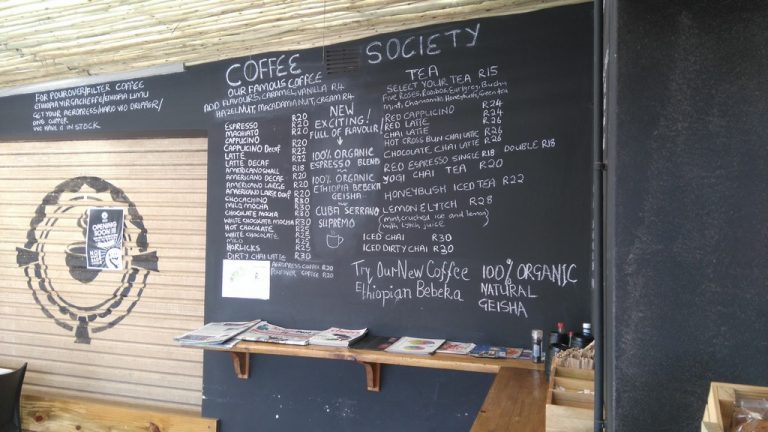 COFFEE SOCIETY
FOR POUROVER/FILTER COFFEE
ETHIOPIA YIRGACHEFFE/ETHIOPIA LIMU
GET YOUR AEROPRESS/HARIO V60 DRIPPER/
WE HAVE IT IN STOCK
OPENING
SOON
OUR FAMOUS COFFEE
ADD FLAVOURS, CARAMEL, VANILLA R4
HAZELNUT, MACADAMIA NUT, CREAM R4
ESPRESSO R20
MACHIATO R20
CAPPUCINO R20
CAPPUCINO Decaf R22
LATTE R22
LATTE DECAF
AMERICANO SMALL R18
AMERICANO DECAF R20
AMERICANO LARGE R20
AMERICANO LARGE Decaf
CHOCACHINO R30
MILO MOCHA R30
CHOCOLATE MOCHA R30
WHITE CHOCOLATE MOCHA R30
HOT CHOCOLATE R25
WHITE CHOCOLATE R25
MILO R25
HORLICKS R25
DIRTY CHAI LATTE R30
AEROPRESS COFFEE R20
POUROVER COFFEE R20
NEW
EXCITING!
FULL OF FLAVOUR!
100% ORGANIC
ESPRESSO BLEND
100% ORGANIC
ETHIOPIA BEBEKA
GEISHA
CUBA SERRANO
SUPREMO
TEA
SELECT YOUR TEA R15
Five Roses, Rooibos, Earl Grey, Buchu
Mint, Chamomile, Honeybush, Green tea
RED CAPPUCINO R24
RED LATTE R24
CHAI LATTE R26
HOT CROSS BUN CHAI LATTE R26
CHOCOLATE CHAI LATTE R26
RED ESPRESSO SINGLE R18 DOUBLE R18
YOGI CHAI TEA R20
HONEYBUSH ICED TEA R22
LEMON LYTCH R28
(mint, crushed ice and lemon)
with lytch juice
ICED CHAI R30
ICED DIRTY CHAI R30
Try Our New Coffee
Ethiopian Bebeka
100% ORGANIC
NATURAL
GEISHA